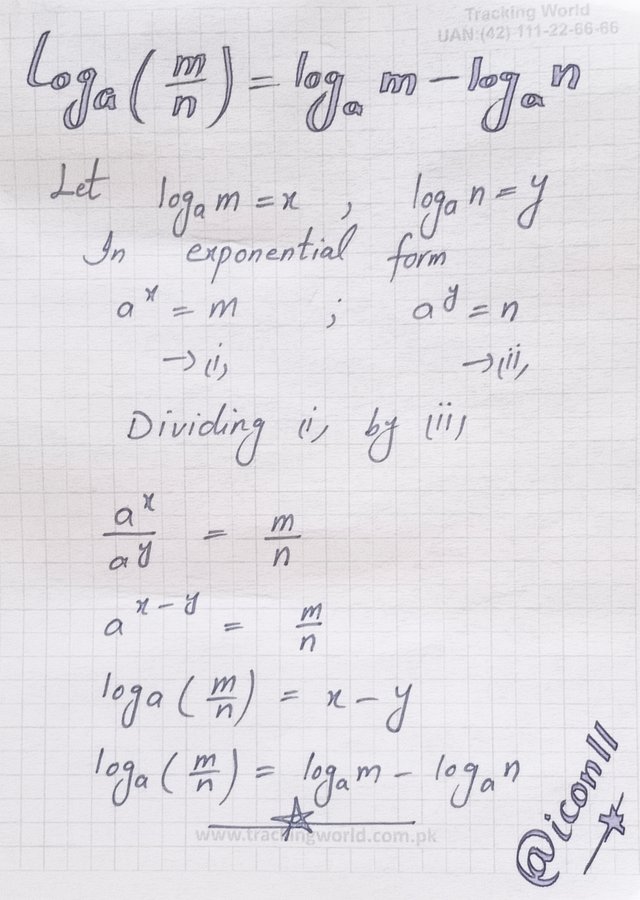 Tracking World
UAN:(42) 111-22-66-66
log_a (m/n) = log_a m - log_a n
Let log_a m = x , log_a n = y
In exponential form
a^x = m ; a^y = n
→(i) →(ii)
Dividing (i) by (ii)
a^x/a^y = m/n
a^(x-y) = m/n
log a (m/n) = x - y
log_a (m/n) = log_a m - log_a n
www.trackingworld.com.pk
@icon11